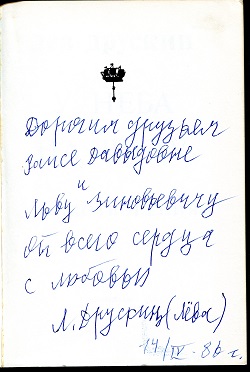 Дорогим друзьям
Раисе Давыдовне
и
Льву Зиновьевичу
от всего сердца
с любовью
Л. Друскин (Лёва)
14/IV-86 г.